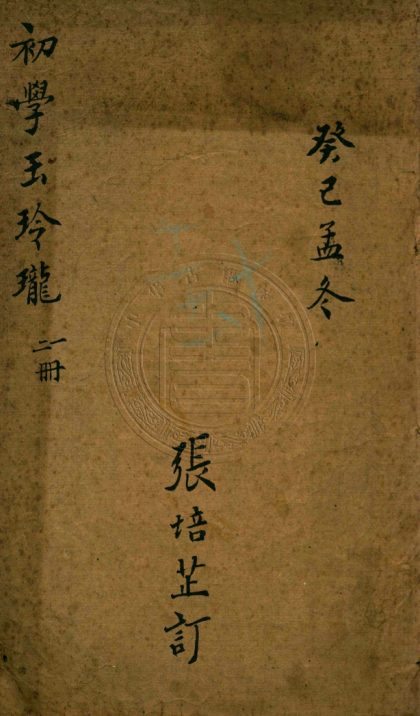 癸巳孟冬
張培芷訂
初學玉玲瓏
冊